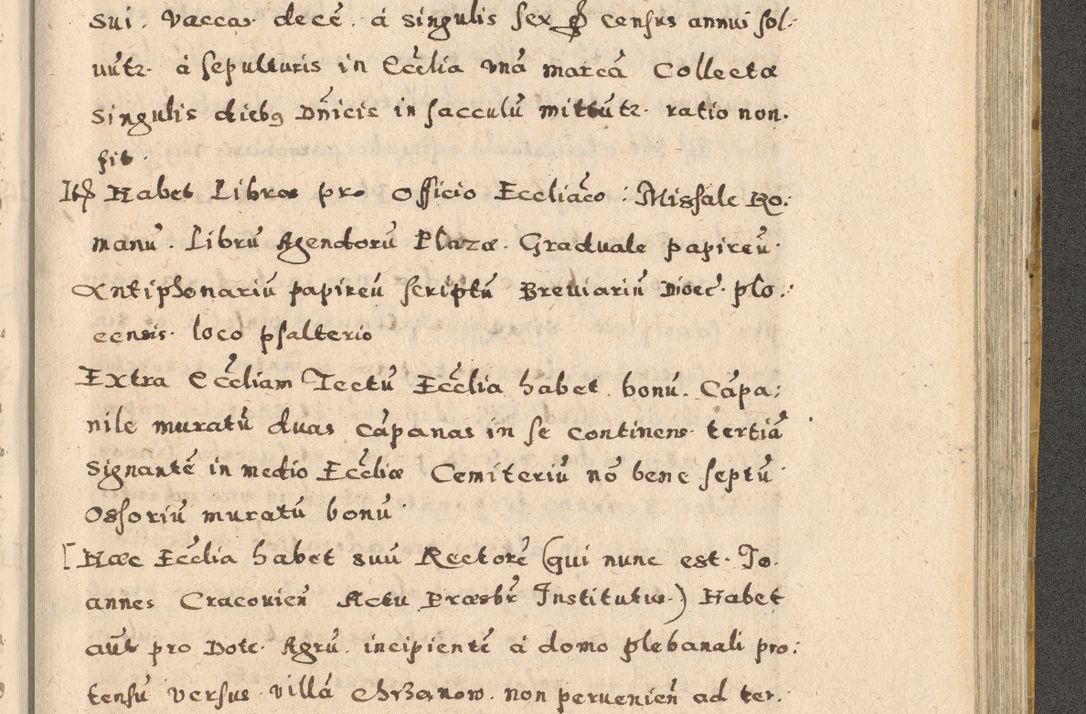 sui. Vaccas decē. á singulis sex gr census annui sol-
uūtr. á sepulturis in Eccłia unā marcā Collectæ
singulis diebꝯ Dn̄icis in sacculū mittūtr. ratio non.
fit.
Itē Habet Libros pro Officio Eccliāco : Missale Ro-
manū. Librū Agendorū Plazæ. Graduale papireū.
Antiphonariū papireū scriptū Breuiariū Dioec. plo-
censis. loco psalterio
Extra Ecćliam Tectū Ecćlia habet. bonū. Cāpa-
nile muratū duas cāpanas in se continens. tertiā
signantē in medio Ecćliæ Cemiteriū nō bene septū.
Ossoriū muratū bonū
[Hæc Ecćlia habet suū Rectorē (qui nunc est. Jo-
annes Cracouien̄ Actu Præsbr̄ Institutus.) Habet
aūt pro Dote. Agrū. incipientē á domo plebanali pro-
tensū versus villā Chrzanow. non peruenien̄ ad ter-